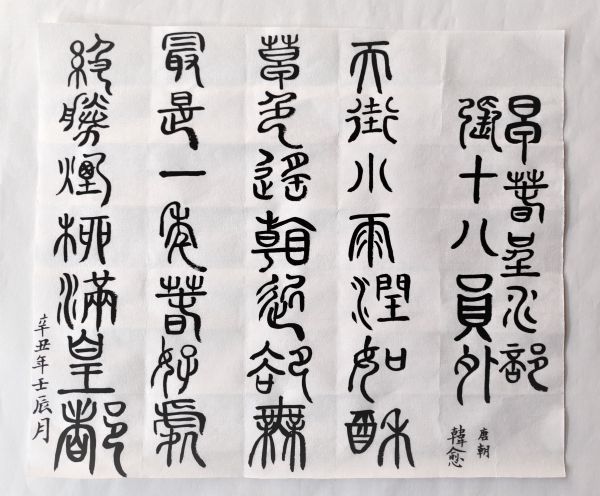 早春呈水部
張十八員外
唐朝
韓愈
天街小雨潤如酥
草色遙看近卻無
最是一年春好處
絕勝煙柳滿皇都
辛丑年壬辰月